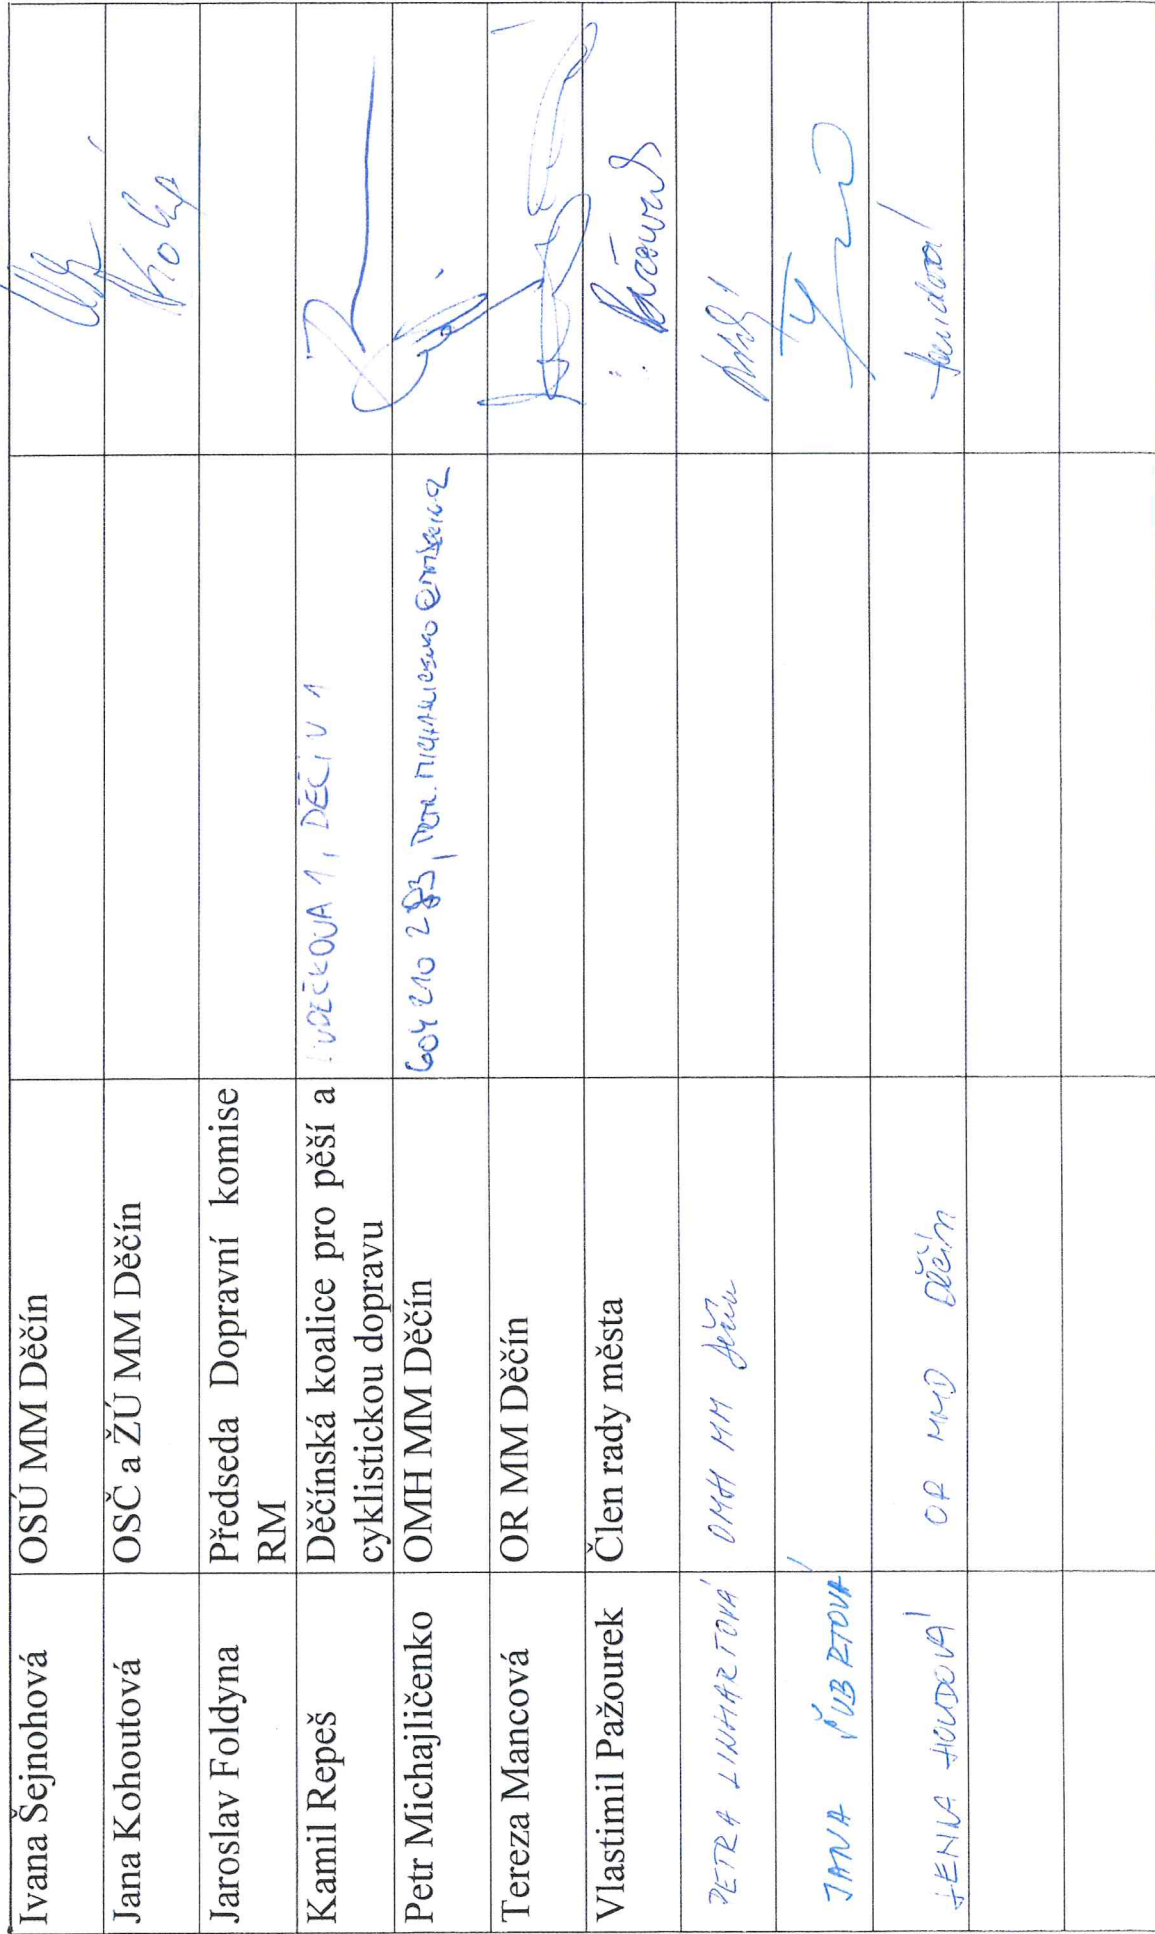 Ivana Šejnohová OSÚ MM Děčín
Jana Kohoutová OSČ a ŽÚ MM Děčín
Jaroslav Foldyna Předseda Dopravní komise
RM
Kamil Repeš Děčínská koalice pro pěší a
cyklistickou dopravu
1, DĚČÍN 1
Petr Michajličenko OMH MM Děčín 604 210
Tereza Mancová OR MM Děčín
Vlastimil Pažourek Člen rady města
PETRA LINHARTOVÁ OMH MM Děčín
JANA ŠUBRTOVÁ
LENKA HOUDOVÁ OR MMD Děčín